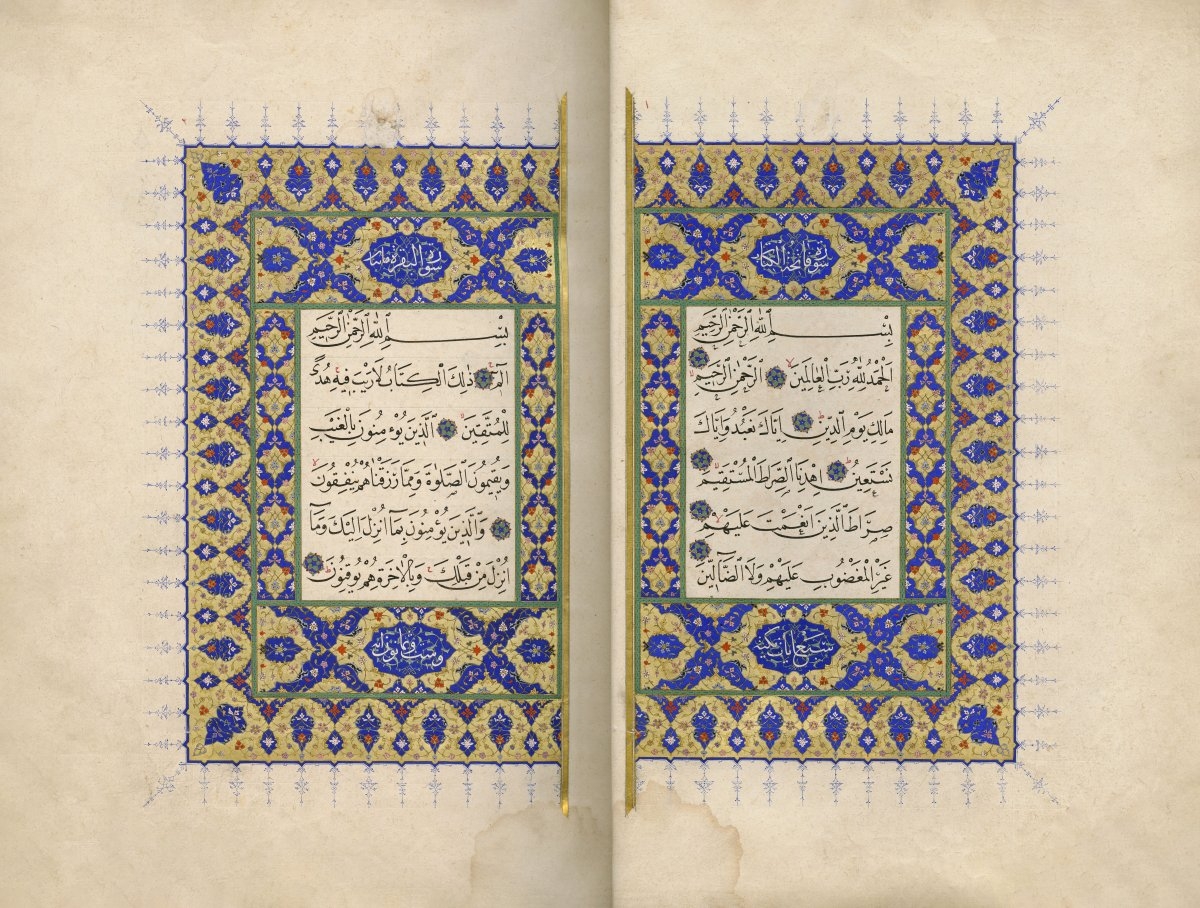 سورة فاتحة الكتاب
بِسْمِ اللّٰهِ الرَّحْمٰنِ الرَّحِيمِ
اَلْحَمْدُ لِلّٰهِ رَبِّ الْعَالَمِينَ الرَّحْمٰنِ الرَّحِيمِ
مَالِكِ يَوْمِ الدِّينِ اِيَّاكَ نَعْبُدُ وَاِيَّاكَ
نَسْتَعِينُ اِهْدِنَا الصِّرَاطَ الْمُسْتَقِيمَ
صِرَاطَ الَّذِينَ اَنْعَمْتَ عَلَيْهِمْ
غَيْرِ الْمَغْضُوبِ عَلَيْهِمْ وَلَا الضَّالِّينَ
سبع آيات مكية
سورة البقرة مائتا
بِسْمِ اللّٰهِ الرَّحْمٰنِ الرَّحِيمِ
الٓمٓ ذٰلِكَ الْكِتَابُ لَا رَيْبَ فِيهِ هُدًى
لِلْمُتَّقِينَ اَلَّذِينَ يُؤْمِنُونَ بِالْغَيْبِ
وَيُقِيمُونَ الصَّلٰوةَ وَمِمَّا رَزَقْنَاهُمْ يُنْفِقُونَ
وَالَّذِينَ يُؤْمِنُونَ بِمَٓا اُنْزِلَ اِلَيْكَ وَمَٓا
اُنْزِلَ مِنْ قَبْلِكَ وَبِالْاٰخِرَةِ هُمْ يُوقِنُونَ
وست وثمانون آية